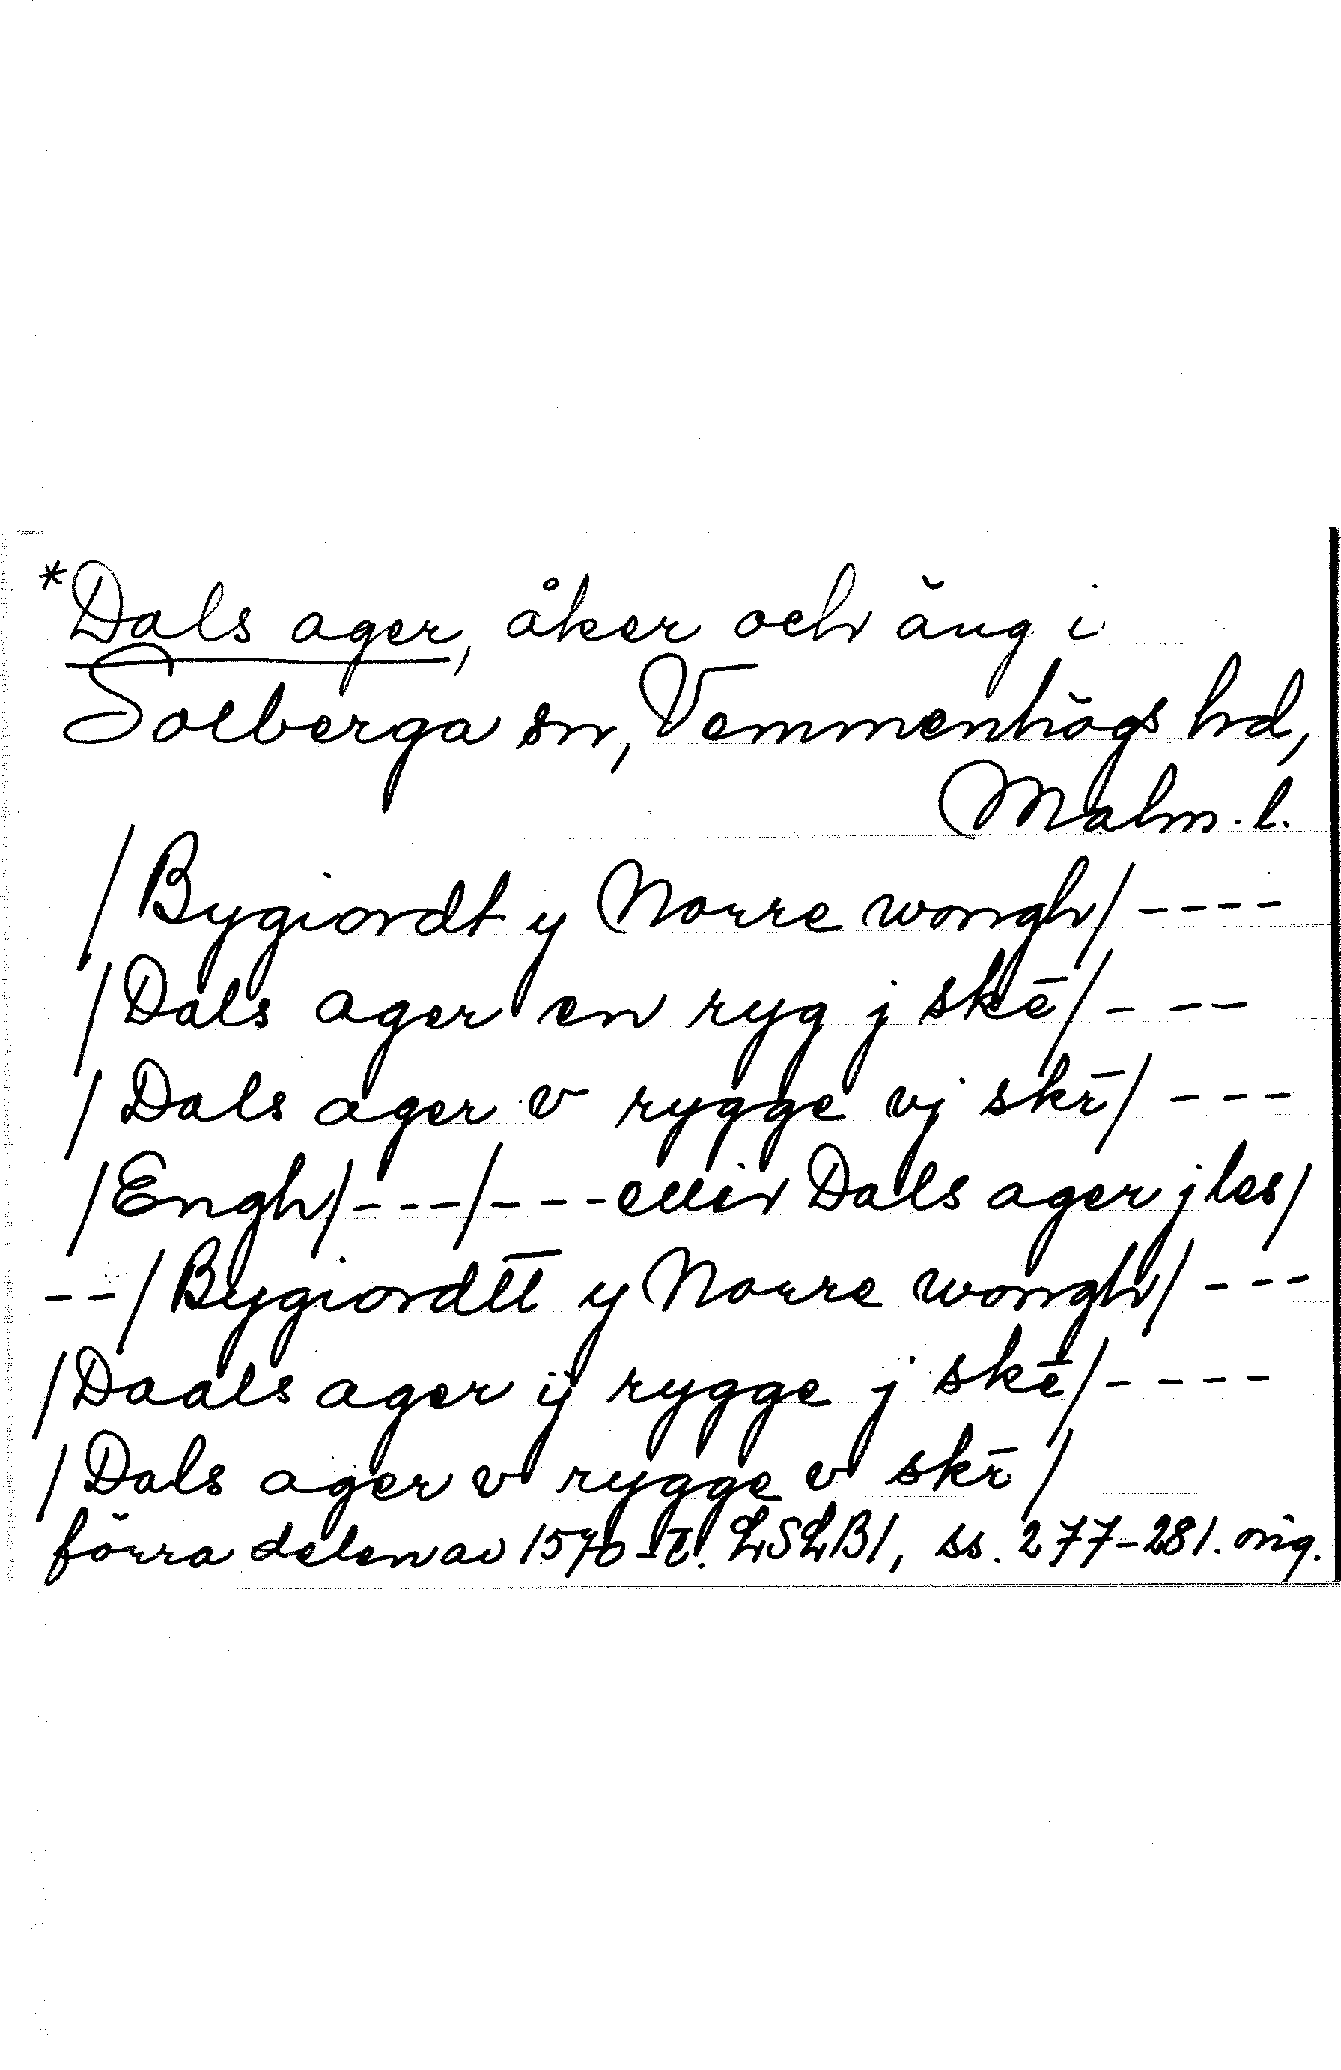 *Dals ager, åker och äng i
Solberga sn, Vemmenhögs hd,
Malm. l.
/Bygiordt y Norre wongh/----
/Dals ager en ryg j skē/---
/Dals ager v rygge vj skr̄/---
/Engh/---/---ellir Dals ager j les/
--/Bygiordtt̄ y Norre wongh/---
/Daals ager ij rygge j skē/----
/Dals ager v rygge v skr̄/
förra delen av 1570-t. LSLB1, ss. 277-281. orig.